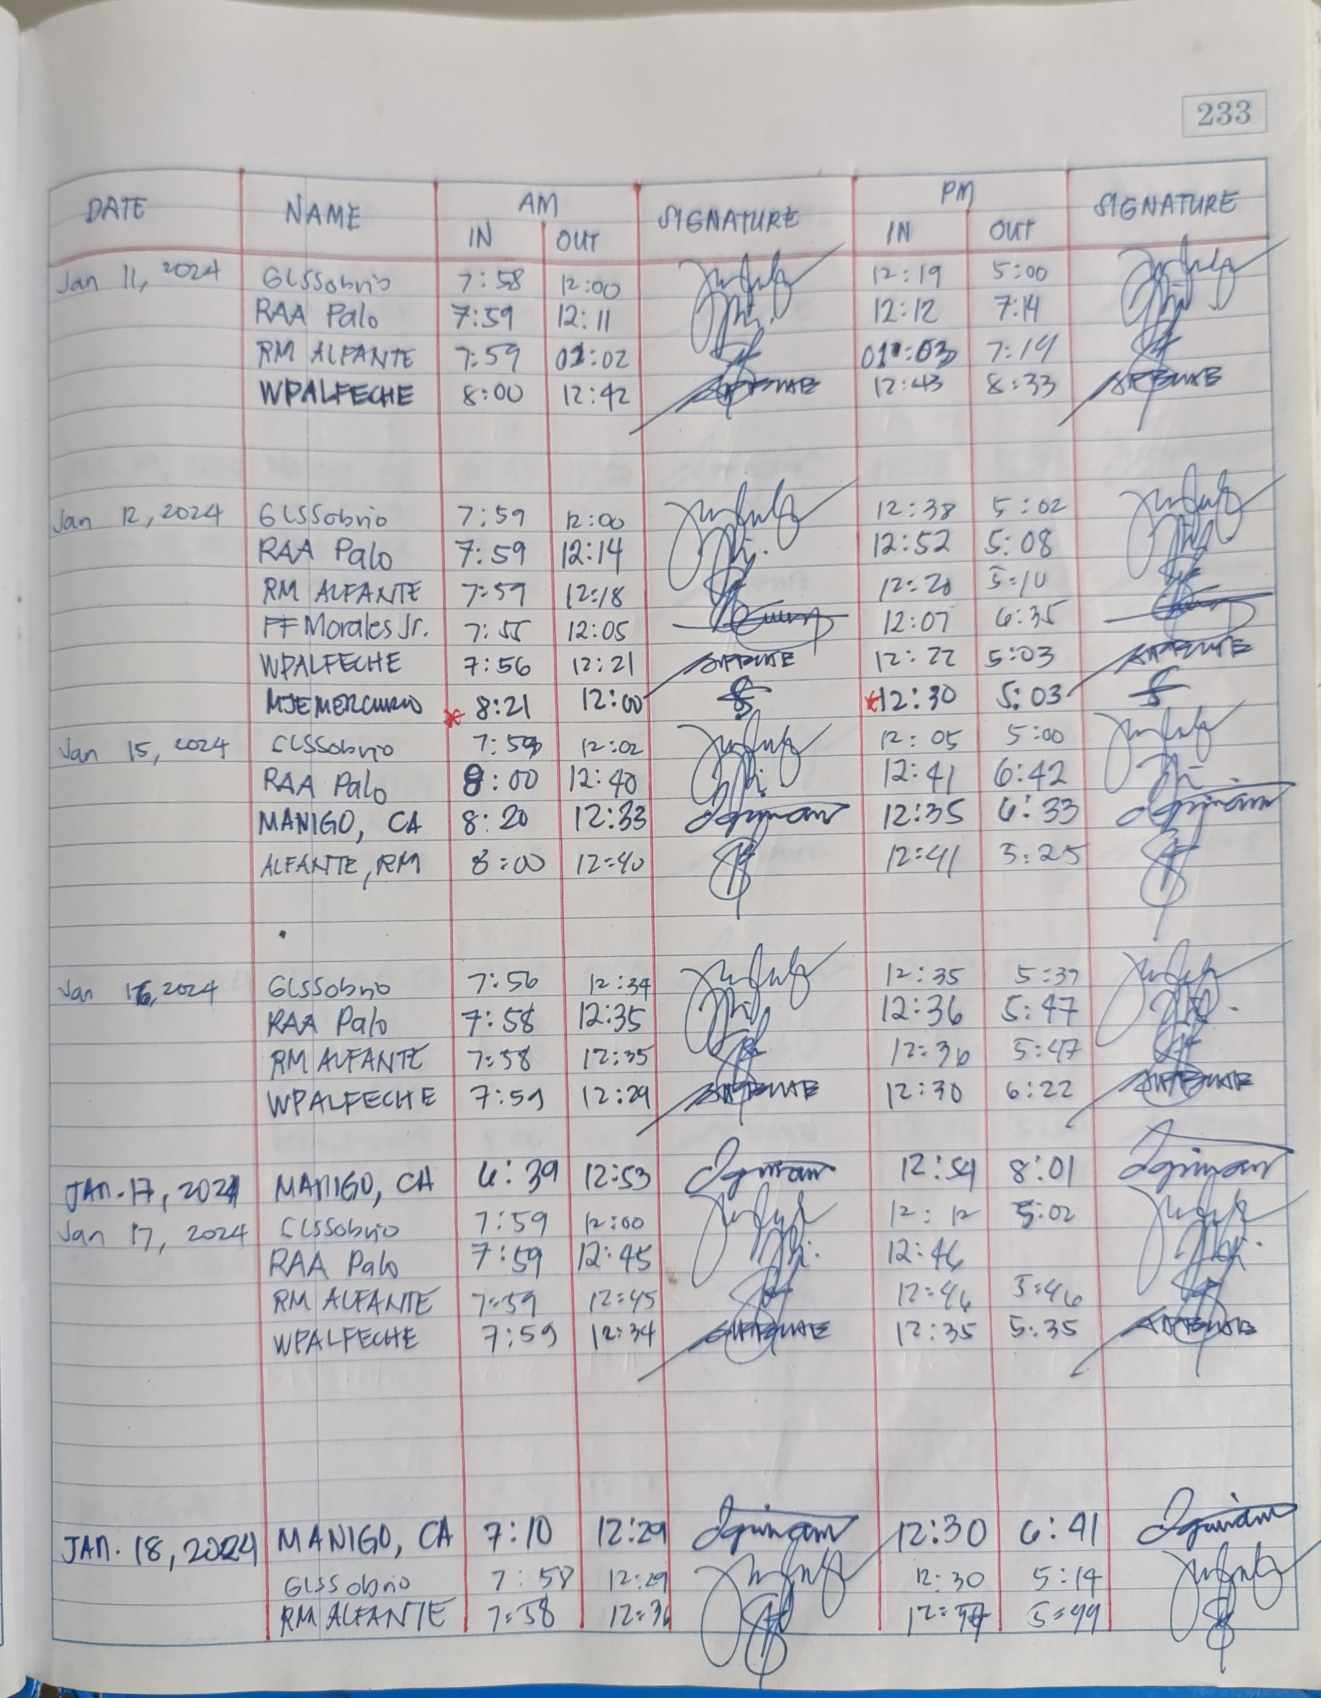 233
DATE NAME AM SIGNATURE PM SIGNATURE
IN OUT IN OUT
Jan 11, 2024 GLSSobrio 7:58 12:00 12:19 5:00
RAA Palo 7:59 12:11 12:12 7:14
RM ALFANTE 7:59 01:02 01:03 7:19
WPALFECHE 8:00 12:42 12:43 8:33
Jan 12, 2024 GLSSobrio 7:59 12:00 12:38 5:02
RAA Palo 7:59 12:14 12:52 5:08
RM ALFANTE 7:59 12:18 12:20 5:10
FF Morales Jr. 7:55 12:05 12:07 6:35
WPALFECHE 7:56 12:21 12:22 5:03
MJEMERCURIO * 8:21 12:00 *12:30 5:03
Jan 15, 2024 GLSSobrio 7:59 12:02 12:05 5:00
RAA Palo 8:00 12:40 12:41 6:42
MANIGO, CA 8:20 12:33 12:35 6:33
ALFANTE, RM 8:00 12:40 12:41 5:25
Jan 16, 2024 GLSSobrio 7:56 12:34 12:35 5:37
RAA Palo 7:58 12:35 12:36 5:47
RM ALFANTE 7:58 12:35 12:36 5:47
WPALFECHE 7:59 12:29 12:30 6:22
JAN. 17, 2024 MANIGO, CA 6:39 12:53 12:54 8:01
Jan 17, 2024 GLSSobrio 7:59 12:00 12:12 5:02
RAA Palo 7:59 12:45 12:46
RM ALFANTE 7:59 12:45 12:46 5:46
WPALFECHE 7:59 12:34 12:35 5:35
JAN. 18, 2024 MANIGO, CA 7:10 12:29 12:30 6:41
GLSSobrio 7:58 12:29 12:30 5:14
RM ALFANTE 7:58 12:36